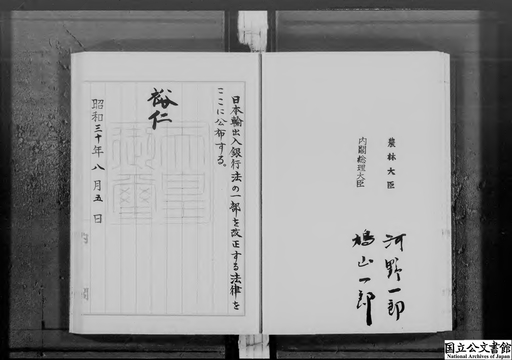 農林大臣 河野一郎
内閣総理大臣 鳩山一郎
日本輸出入銀行法の一部を改正する法律を
ここに公布する。
裕仁
天皇
御璽
昭和三十年八月五日
国立公文書館
National Archives of Japan